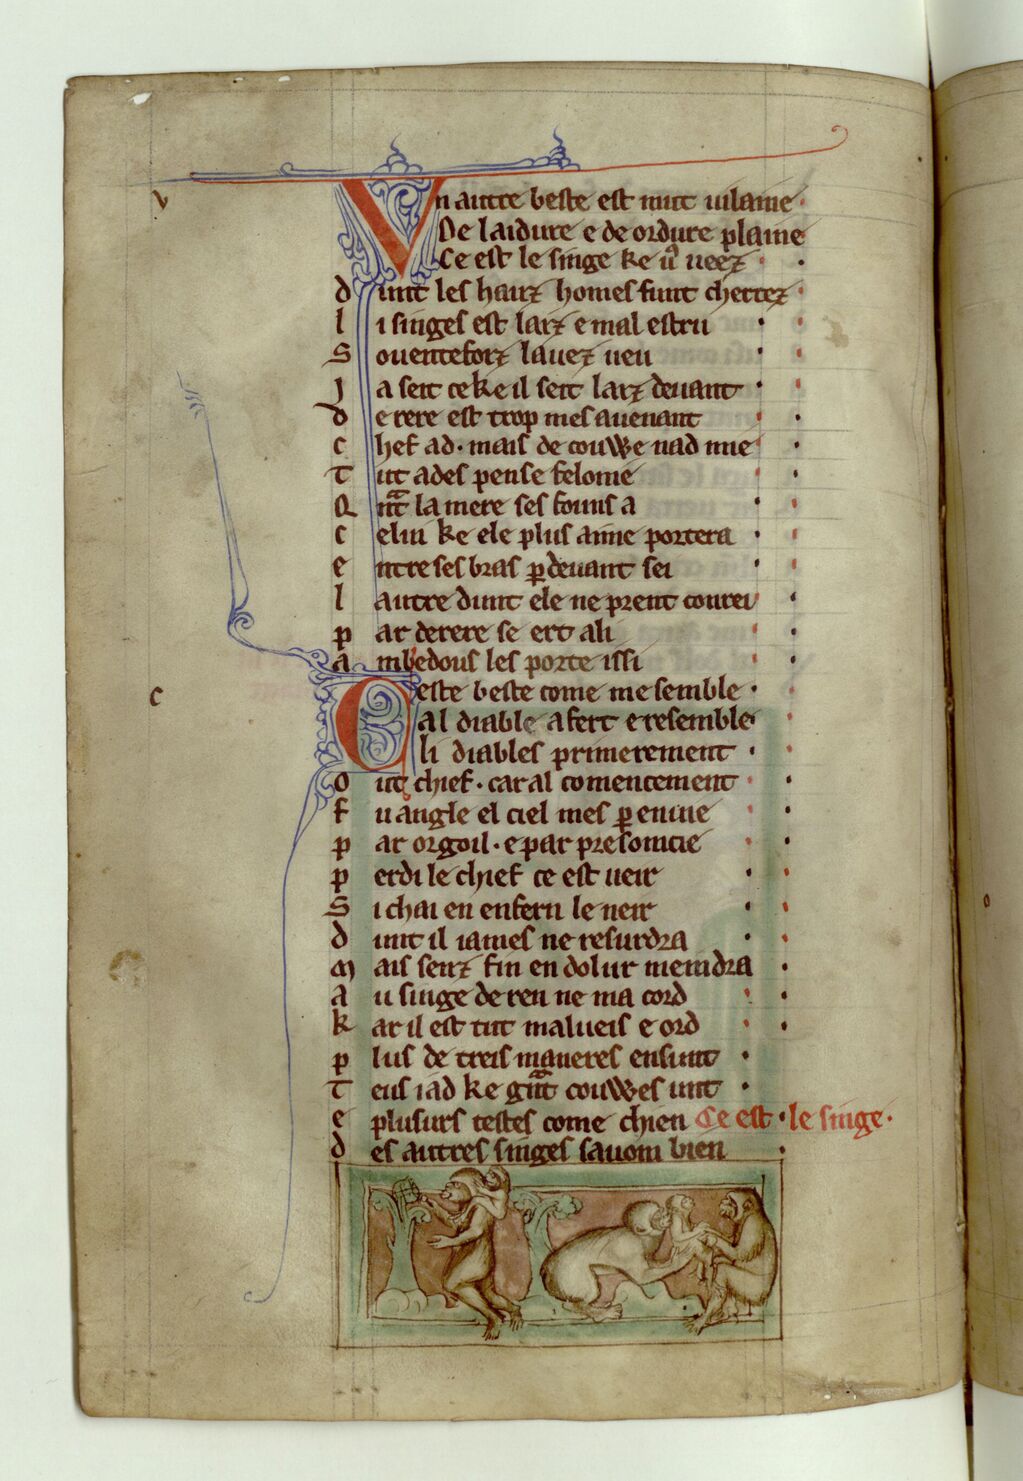 v
Vn autre beste est mut uilaine
De laidure e de ordure plaine
Ce est le singe ke uͦ ueez
dunt les hauz homes sunt chertez
li singes est laiz e mal estru
Souentefoiz lauez ueu
Ja seit ceke il seit laiz deuant
derere est trop mes auenant
chef ad · mais de couwe nad mie
Tut ades pense felonie
Qnͣt la mere ses founs a
celui ke ele plus aime portera
entre ses bras ꝑ deuant sei
lautre dunt ele ne prent conrei
par derere se ert a li
ambedous les porte issi
c
Ceste beste come me semble ·
al diable afert e resemble
li diables primerement ·
out chief · car al comencement
fu angle el ciel mes ꝑ enuie
par orgoil · e par presomcie
perdi le chief ce est ueir
Si chai en enfern le neir
dunt il iames ne resurdra
Mais senz fin en dolur meindra
au singe de ren ne ma cord
kar il est tut malueis e ord
plus de treis maneres en sunt ·
Teus iad ke gnͣt couwes unt ·
e plusurs testes come chien Ce est · le singe ·
des autres singes sauom bien